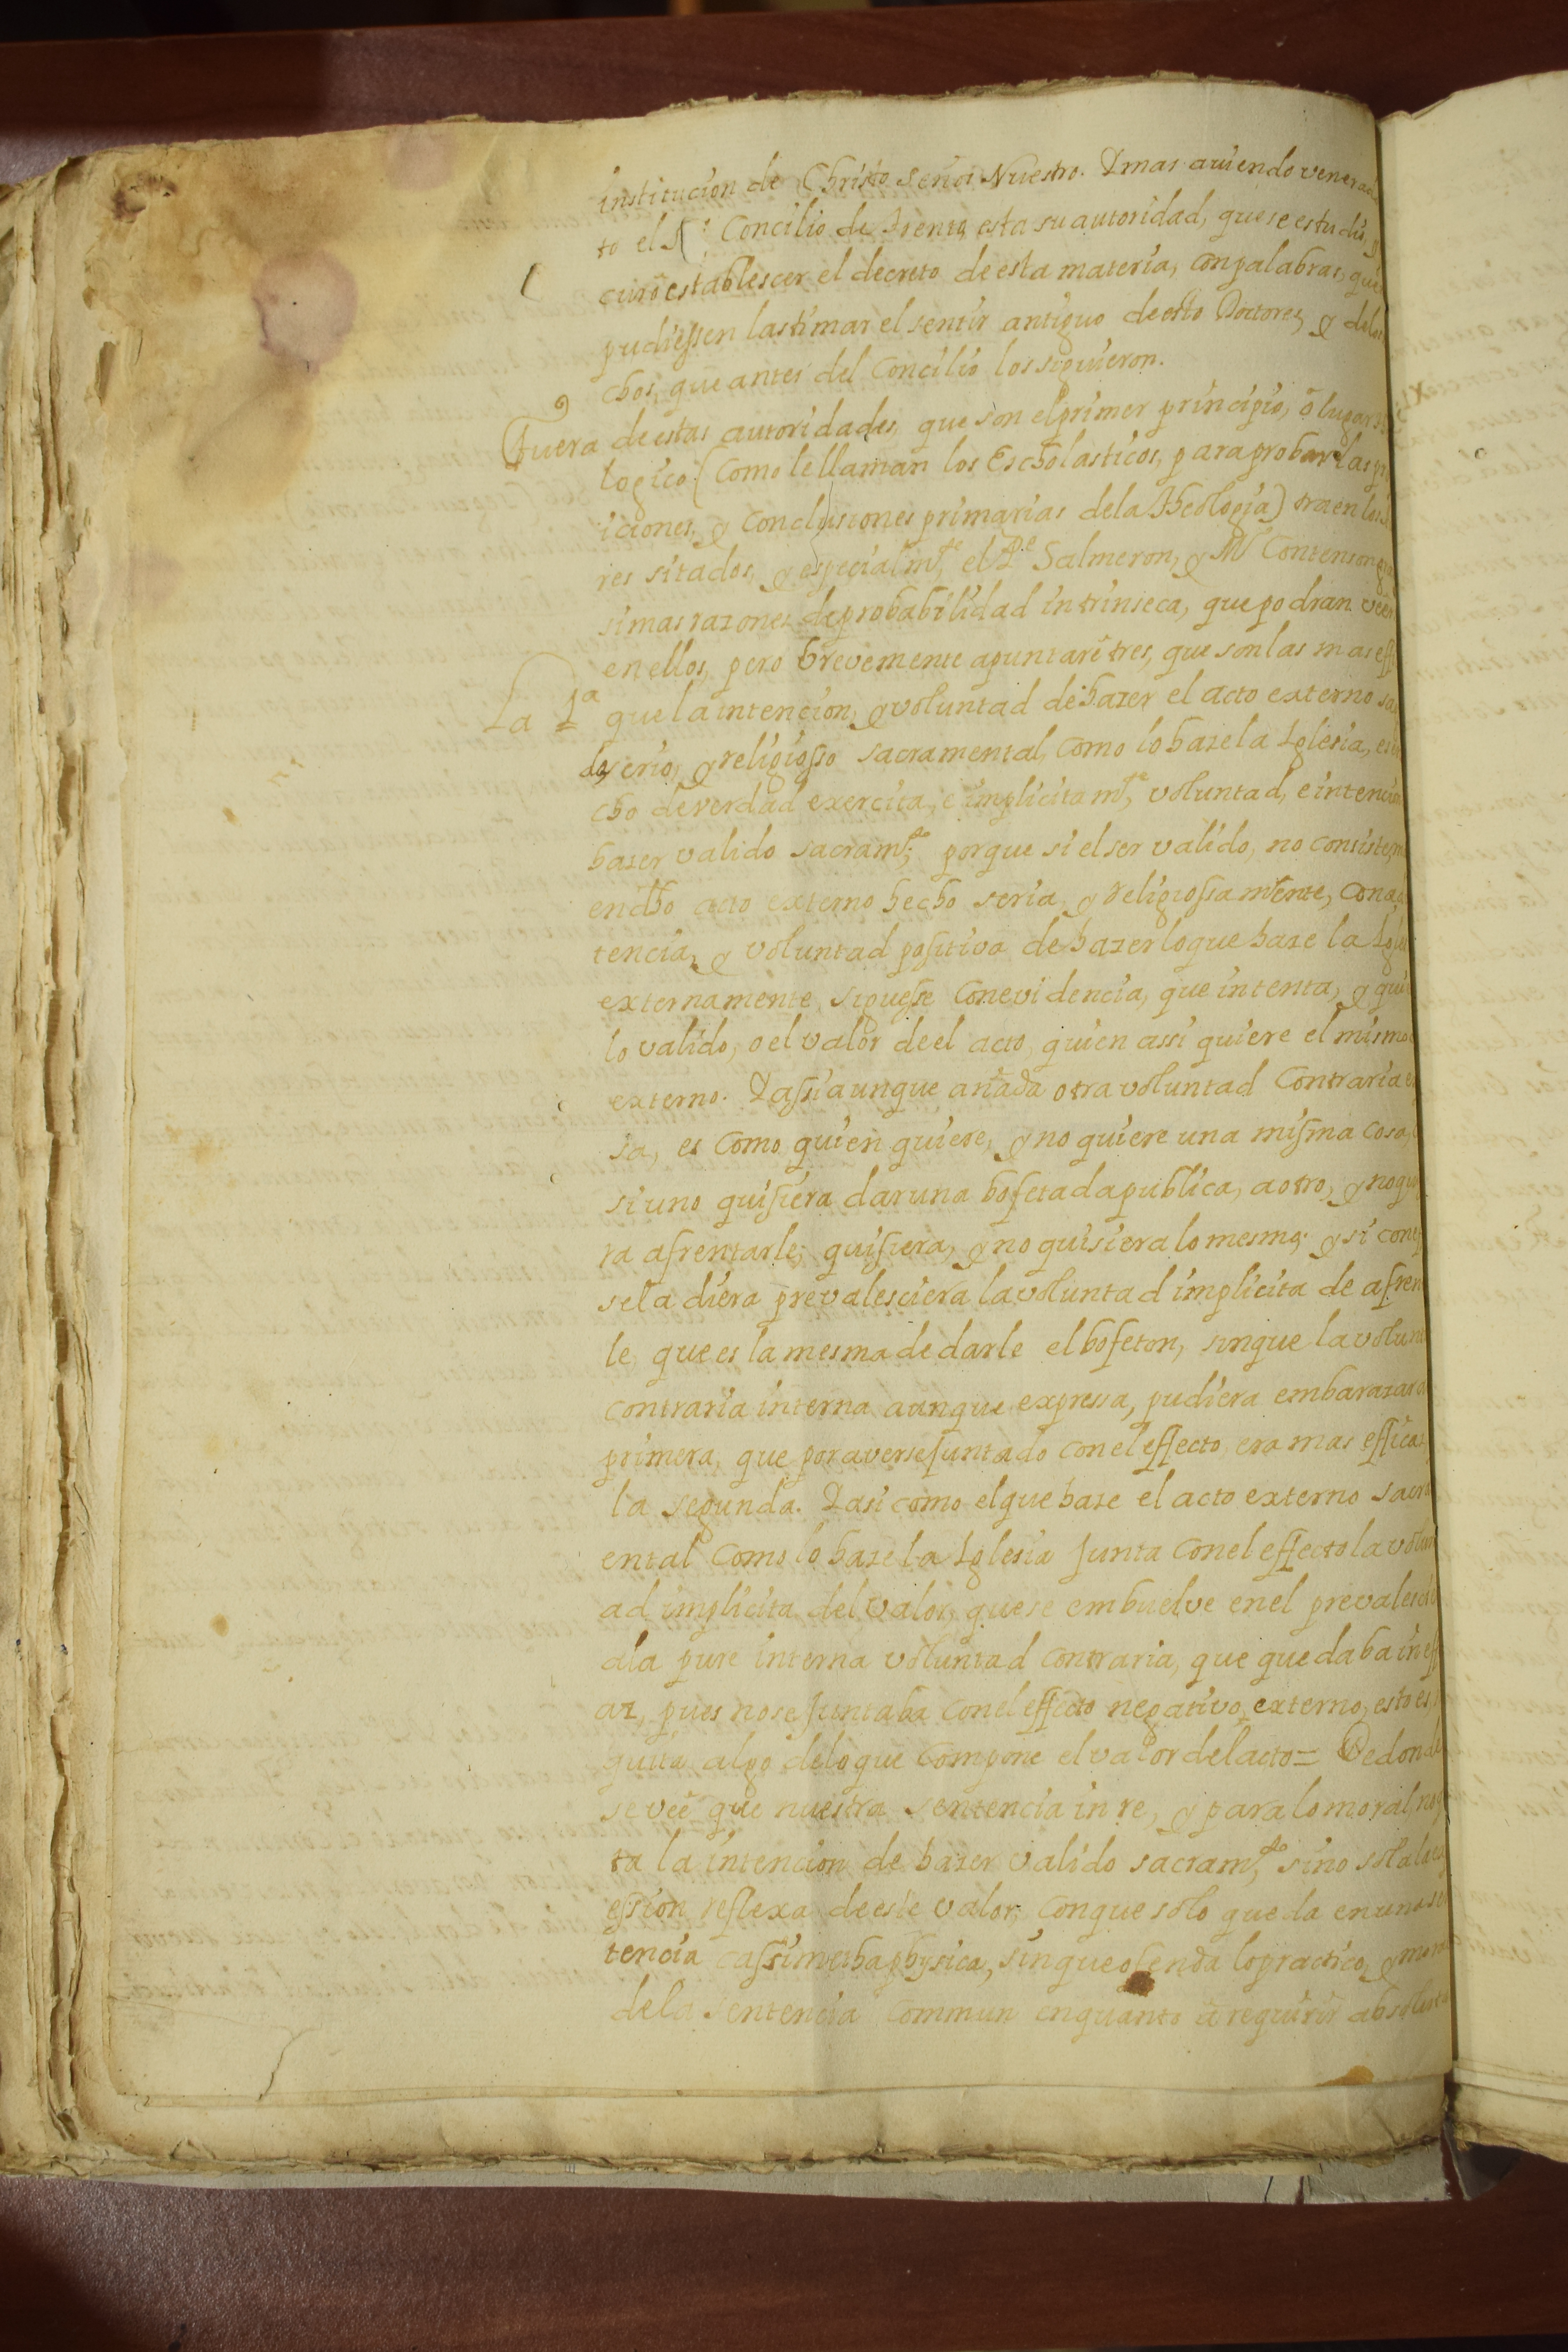 institucion de Christo señor Nuestro. Ymas aviendo venerad
to el S.º Concilio de Trento esta su autoridad, quese estudio, y
curò establescer el decreto de esta materia, con palabras, que
pudiessen lastimar el sentir antiguo de esto Doctores, y delos
chos, que antes del Concilio los siguieron.
Fuera de estas autoridades, que son el primer principio, ò lugar
logico (como le llaman los Escholasticos, para probar las
iciones, y Conclusiones primarias dela Theologia) traen los
res sitados, y especialmte el Pe Salmeron, y Mro Contenson
simas razones de probabilidad intrinseca, que podran veer
en ellos, pero brevemente apuntarè tres, que son las mas
La 1a que la intencion, y voluntad de hazer el acto externo
do, serio, y religiosso sacramental, como lo haze la Iglesia, es
cho de verdad exercita, e implicitamte, voluntad, e intencion
hazer valido sacramto; porque si el ser valido, no consiste,
en dho acto externo hecho seria, y Religiossamente, con
tencia, y voluntad positiva de hazer lo que haze la Igle
externamente, siguesse con evidencia, que intenta, y qui
lo valido, o el valor de el acto, quien assi quiere el mismo
externo. Yassi aunque añada otra voluntad Contraria
sa, es como quien quiere, y no quiere una misma cosa,
si uno quisiera dar una bofetada publica, a otro, y no qui
ra afrentarle; quisiera, y no quisiera lo mesmo; y si con
se la diera prevalesciera la voluntad implicita de afren
le, que es la mesma de darle el bofeton, sin que la volunt
contraria interna aunque expressa, pudiera embarazar
primera, que por averse juntado con el effecto, era mas efficaz
la segunda. Yasi como el que haze el acto externo sacra
ental como lo haze la Iglesia junta con el effecto la volun
ad implicita del valor, que se embuelve en el prevalescio
a la pure interna voluntad contraria, que quedaba ineff
az, pues no se juntaba con el effecto negativo, externo, esto es,
quita algo delo que compone el valor del acto = Dedonde
se veè que nuestra sentencia in re, y para lo moral, no
ta la intencion de hazer valido sacramto, sino sola la
ession reflexa de este valor; conque solo queda en una
tencia cassi methaphysica, sin que ofenda lo practico, y mora
dela sentencia commun en quanto à requirir absolut